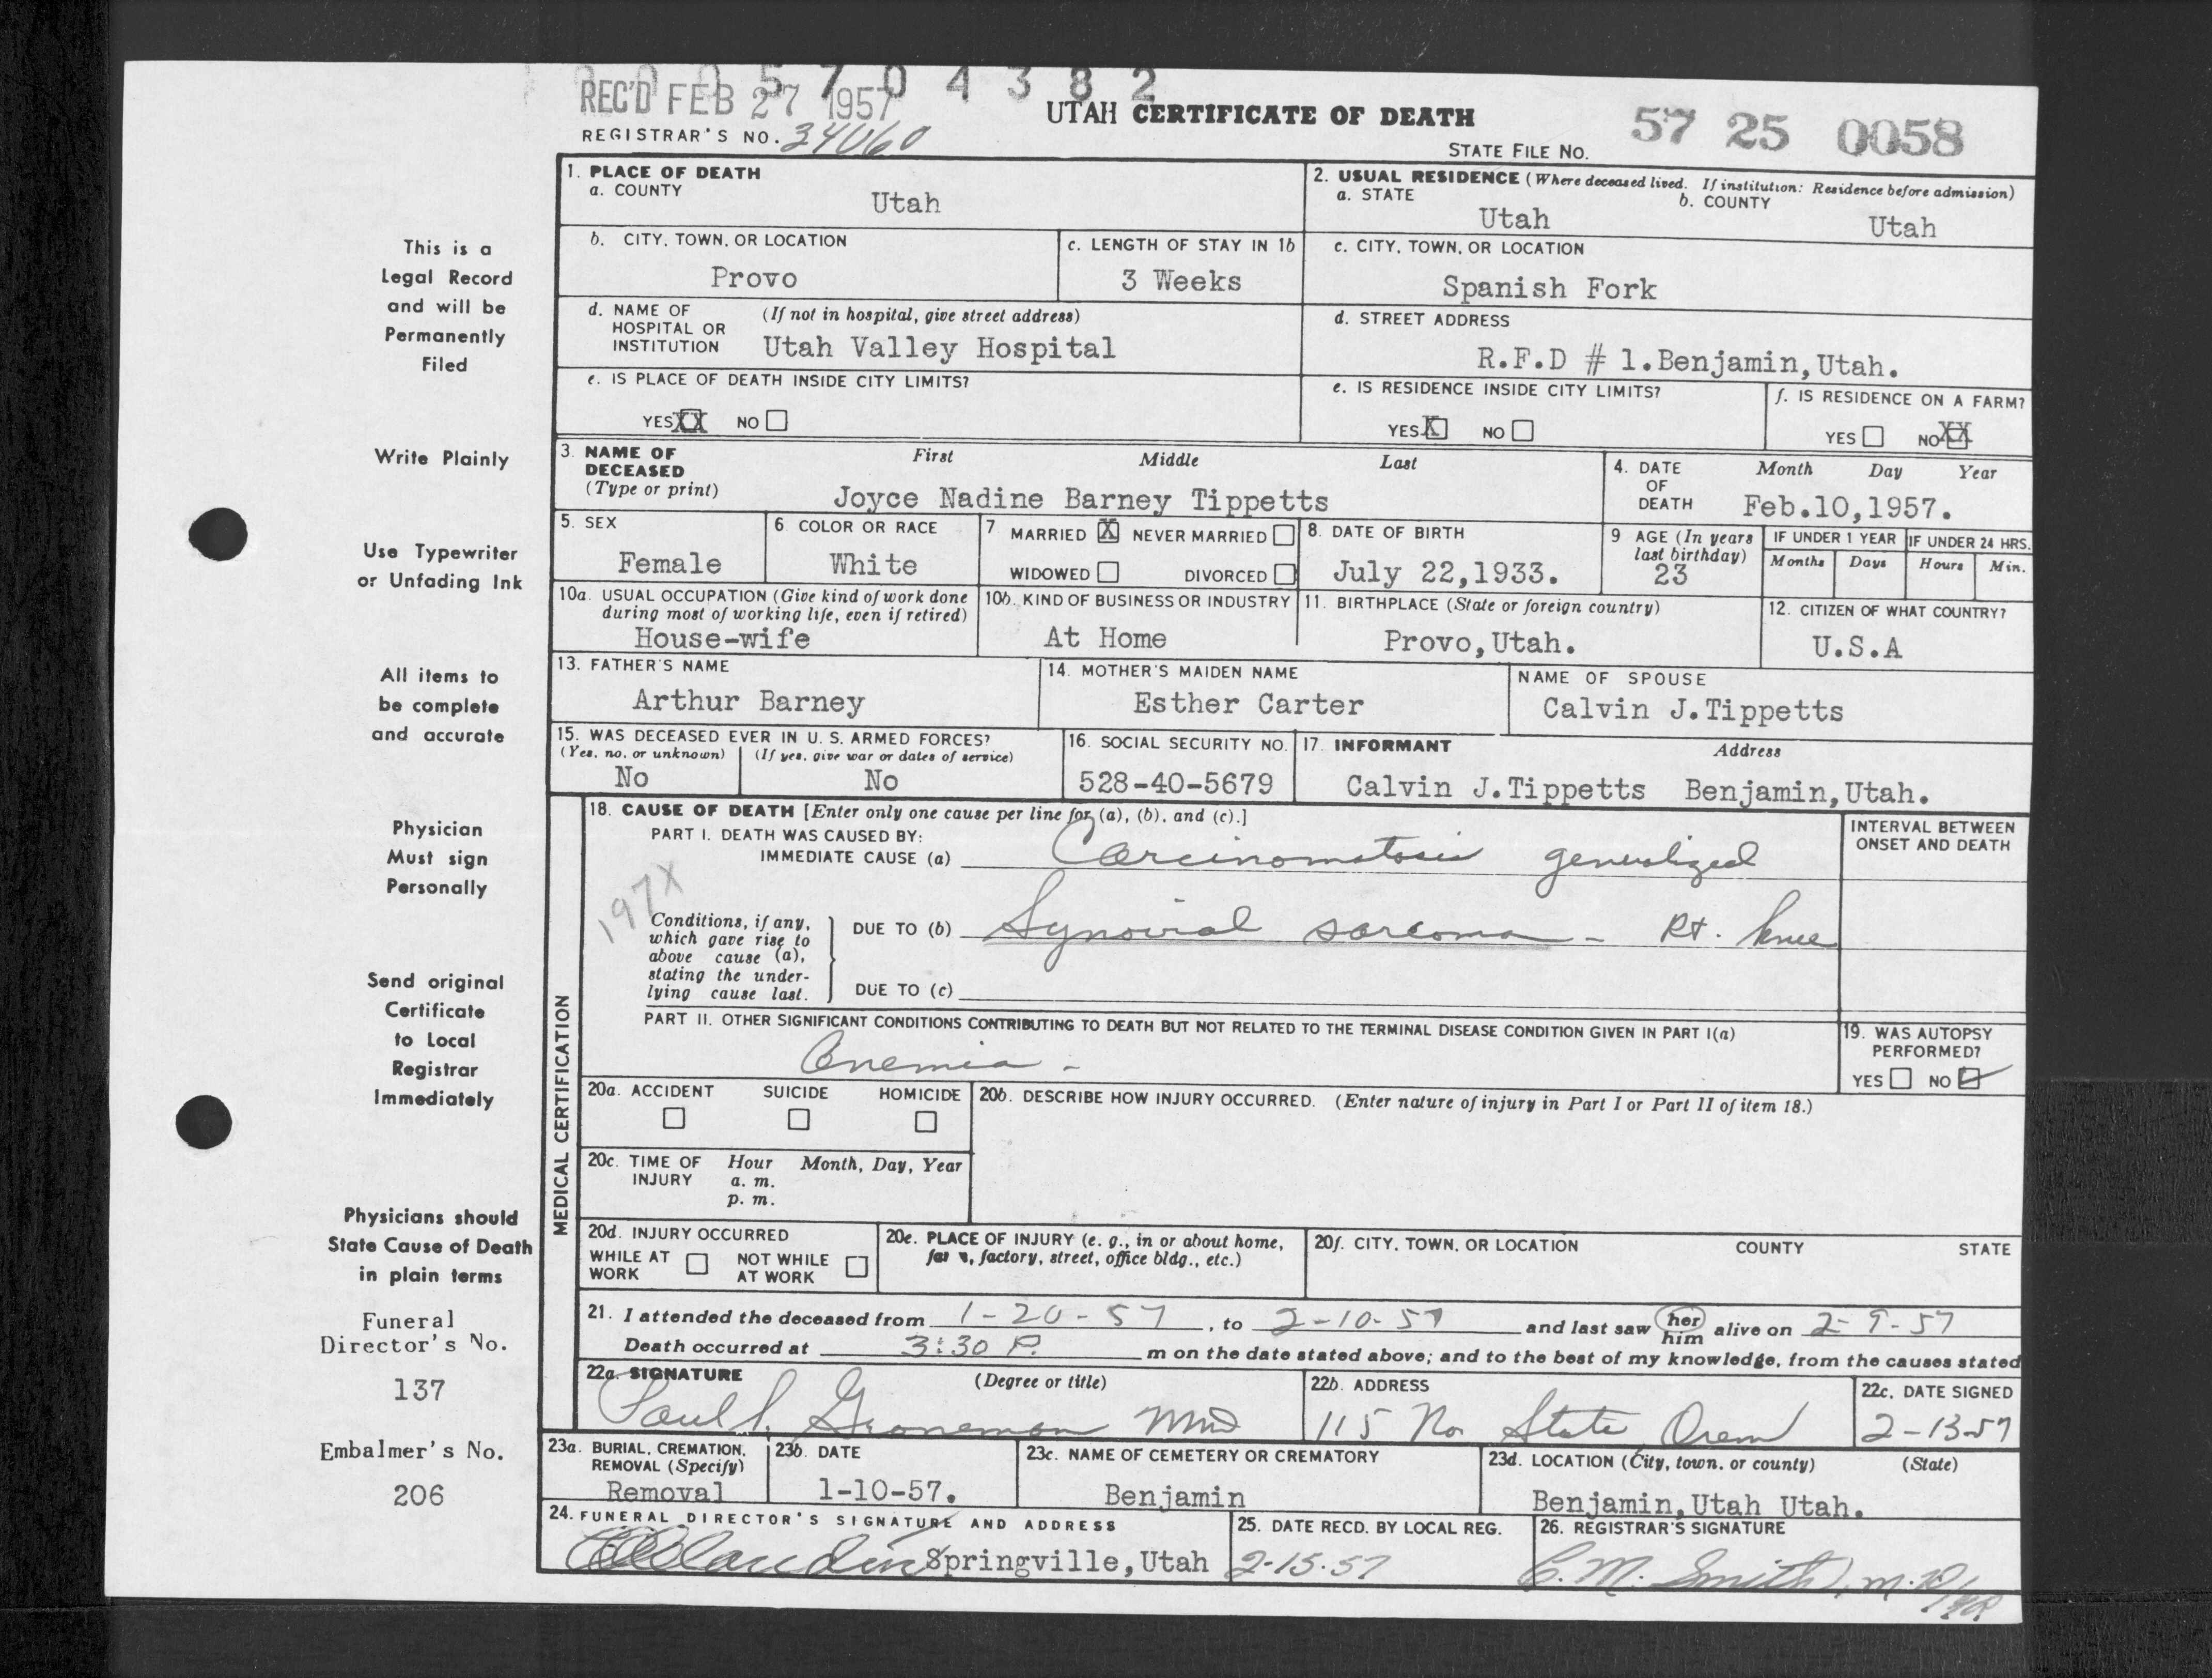 0 0 0 5 7 0 4 3 8 2
REC'D FEB 27 1957
UTAH CERTIFICATE OF DEATH
REGISTRAR'S NO. 34060
STATE FILE NO. 57 25 0058
This is a
Legal Record
and will be
Permanently
Filed
Write Plainly
Use Typewriter
or Unfading Ink
All items to
be complete
and accurate
Physician
Must sign
Personally
Send original
Certificate
to Local
Registrar
Immediately
Physicians should
State Cause of Death
in plain terms
Funeral
Director's No.
137
Embalmer's No.
206
1. PLACE OF DEATH
a. COUNTY
Utah
2. USUAL RESIDENCE (Where deceased lived. If institution: Residence before admission)
a. STATE
Utah
b. COUNTY
Utah
b. CITY, TOWN, OR LOCATION
Provo
c. LENGTH OF STAY IN 1b
3 Weeks
c. CITY, TOWN, OR LOCATION
Spanish Fork
d. NAME OF HOSPITAL OR INSTITUTION (If not in hospital, give street address)
Utah Valley Hospital
d. STREET ADDRESS
R.F.D # 1.Benjamin,Utah.
e. IS PLACE OF DEATH INSIDE CITY LIMITS?
YES XX NO
e. IS RESIDENCE INSIDE CITY LIMITS?
YES X NO
f. IS RESIDENCE ON A FARM?
YES NO XX
3. NAME OF DECEASED (Type or print)
First Middle Last
Joyce Nadine Barney Tippetts
4. DATE OF DEATH
Month Day Year
Feb.10,1957.
5. SEX
Female
6. COLOR OR RACE
White
7. MARRIED X NEVER MARRIED
WIDOWED DIVORCED
8. DATE OF BIRTH
July 22,1933.
9. AGE (In years last birthday)
23
IF UNDER 1 YEAR
Months Days
IF UNDER 24 HRS.
Hours Min.
10a. USUAL OCCUPATION (Give kind of work done during most of working life, even if retired)
House-wife
10b. KIND OF BUSINESS OR INDUSTRY
At Home
11. BIRTHPLACE (State or foreign country)
Provo,Utah.
12. CITIZEN OF WHAT COUNTRY?
U.S.A
13. FATHER'S NAME
Arthur Barney
14. MOTHER'S MAIDEN NAME
Esther Carter
NAME OF SPOUSE
Calvin J.Tippetts
15. WAS DECEASED EVER IN U. S. ARMED FORCES?
(Yes, no, or unknown) (If yes, give war or dates of service)
No No
16. SOCIAL SECURITY NO.
528-40-5679
17. INFORMANT Address
Calvin J.Tippetts Benjamin,Utah.
MEDICAL CERTIFICATION
18. CAUSE OF DEATH [Enter only one cause per line for (a), (b), and (c).]
INTERVAL BETWEEN ONSET AND DEATH
PART I. DEATH WAS CAUSED BY:
IMMEDIATE CAUSE (a) Carcinomatosis generalized
197X
Conditions, if any, which gave rise to above cause (a), stating the underlying cause last.
DUE TO (b) Synovial sarcoma - Rt. knee
DUE TO (c)
PART II. OTHER SIGNIFICANT CONDITIONS CONTRIBUTING TO DEATH BUT NOT RELATED TO THE TERMINAL DISEASE CONDITION GIVEN IN PART I(a)
Anemia -
19. WAS AUTOPSY PERFORMED?
YES NO ✓
20a. ACCIDENT SUICIDE HOMICIDE
20b. DESCRIBE HOW INJURY OCCURRED. (Enter nature of injury in Part I or Part II of item 18.)
20c. TIME OF INJURY Hour Month, Day, Year
a. m.
p. m.
20d. INJURY OCCURRED
WHILE AT WORK NOT WHILE AT WORK
20e. PLACE OF INJURY (e. g., in or about home, farm, factory, street, office bldg., etc.)
20f. CITY, TOWN, OR LOCATION COUNTY STATE
21. I attended the deceased from 1-20-57, to 2-10-57 and last saw her him alive on 2-9-57
Death occurred at 3:30 P. m on the date stated above; and to the best of my knowledge, from the causes stated
22a. SIGNATURE (Degree or title)
Paul S. Groneman MD
22b. ADDRESS
115 No. State Orem
22c. DATE SIGNED
2-13-57
23a. BURIAL, CREMATION, REMOVAL (Specify)
Removal
23b. DATE
1-10-57.
23c. NAME OF CEMETERY OR CREMATORY
Benjamin
23d. LOCATION (City, town, or county) (State)
Benjamin,Utah Utah.
24. FUNERAL DIRECTOR'S SIGNATURE AND ADDRESS
Springville,Utah
25. DATE RECD. BY LOCAL REG.
2-15-57
26. REGISTRAR'S SIGNATURE
C.M. Smith, M.D.